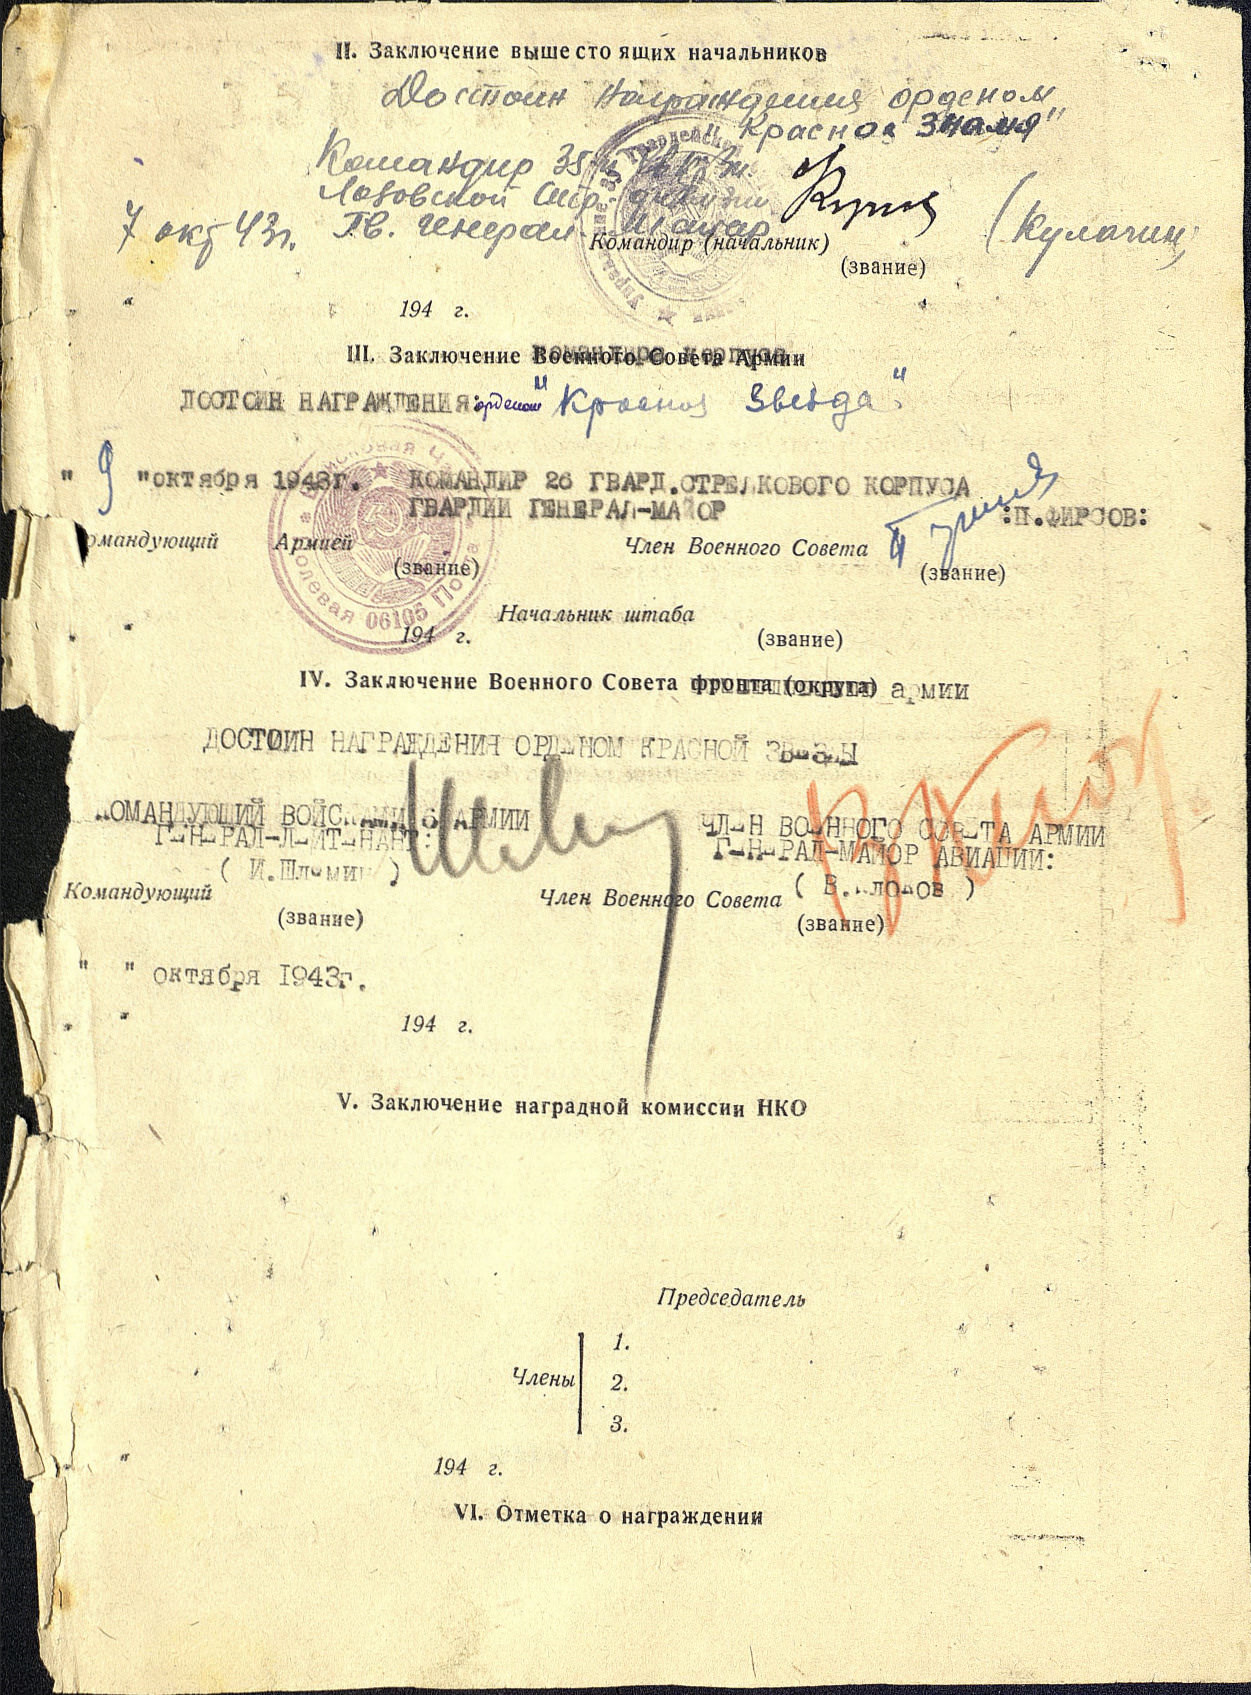 II. Заключение вышестоящих начальников
Достоин награждения орденом
"Красное Знамя"
Командир 35-й Гв. Кр. Зн.
Лозовской Стр. дивизии
7 окт 43 г. Гв. Генерал Майор (Кулагин)
Командир (начальник)
(звание)
" 194 г.
III. Заключение Военного Совета Армии
командира корпуса
ДОСТОИН НАГРАЖДЕНИЯ: орденом "Красная Звезда"
" 9 "октября 1943г. КОМАНДИР 26 ГВАРД.СТРЕЛКОВОГО КОРПУСА
ГВАРДИИ ГЕНЕРАЛ-МАЙОР :П.ФИРСОВ:
омандующий Армией Член Военного Совета
(звание) (звание)
Полевая Почта 06105
Начальник штаба
" 194 г. (звание)
IV. Заключение Военного Совета фронта (округа) армии
ДОСТОИН НАГРАЖДЕНИЯ ОРДЕНОМ КРАСНОЙ ЗВЕЗДЫ
КОМАНДУЮЩИЙ ВОЙСКАМИ 6 АРМИИ ЧЛЕН ВОЕННОГО СОВЕТА АРМИИ
ГЕНЕРАЛ-ЛЕЙТЕНАНТ: ГЕНЕРАЛ-МАЙОР АВИАЦИИ:
( И.Шлемин ) ( В.Клоков )
Командующий Член Военного Совета
(звание) (звание)
" " октября 1943г.
" " 194 г.
V. Заключение наградной комиссии НКО
Председатель
1.
Члены 2.
3.
" 194 г.
VI. Отметка о награждении